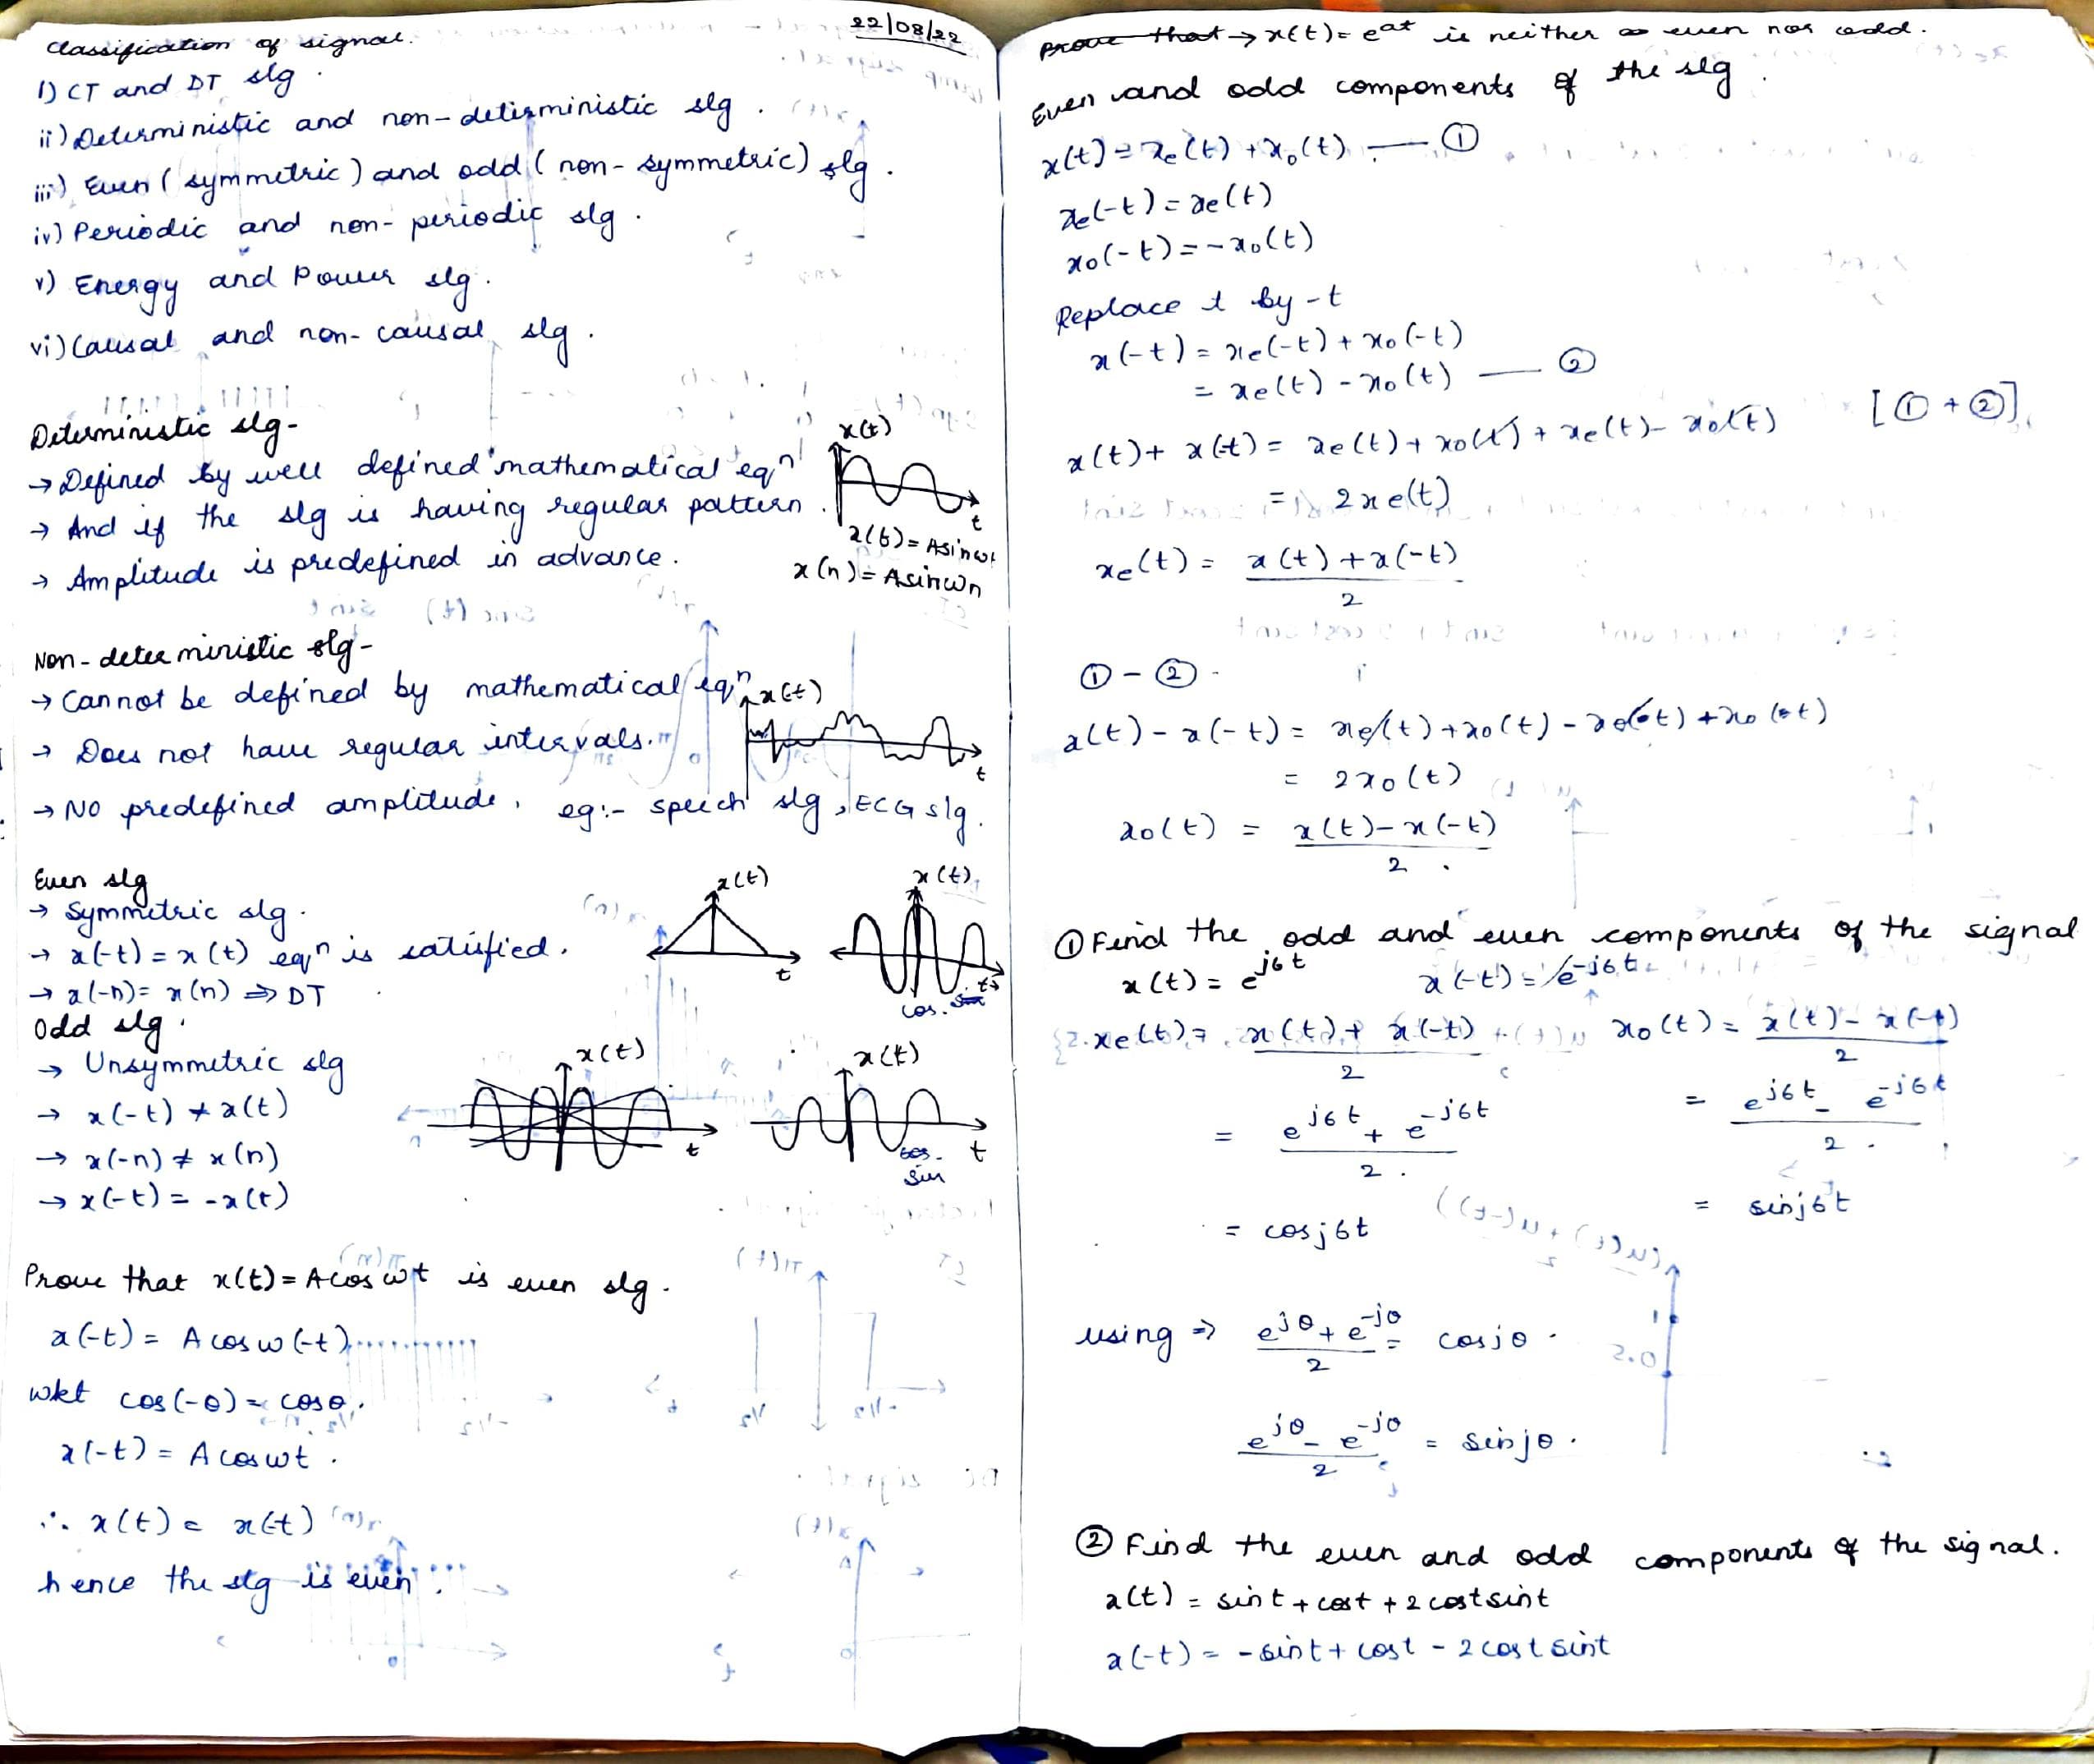 22/08/22
Classification of signal.
i) CT and DT slg.
ii) Deterministic and non-deterministic slg.
iii) Even (symmetric) and odd (non-symmetric) slg.
iv) Periodic and non-periodic slg.
v) Energy and Power slg.
vi) Causal and non-causal slg.
Deterministic slg-
→ Defined by well defined mathematical eqn
→ And if the slg is having regular pattern.
→ Amplitude is predefined in advance.
x(t)
t
x(t) = Asinωt
x(n) = Asinωn
Non-deterministic slg-
→ Cannot be defined by mathematical eqn
→ Does not have regular intervals.
x(t)
t
→ No predefined amplitude, eg:- speech slg, ECG slg.
Even slg
→ Symmetric slg.
→ x(-t) = x(t) eqn is satisfied.
→ x(-n) = x(n) ⇒ DT
x(t)
t
x(t)
t
cos.
Odd slg.
→ Unsymmetric slg
→ x(-t) ≠ x(t)
→ x(-n) ≠ x(n)
→ x(-t) = -x(t)
x(t)
t
x(t)
t
sin
Prove that x(t) = A cos ωt is even slg.
x(-t) = A cos ω(-t)
wkt cos(-θ) = cosθ.
x(-t) = A cosωt.
∴ x(t) = x(-t)
hence the slg is even.
Prove that → x(t) = e^at is neither even nor odd.
Even and odd components of the slg.
x(t) = xe(t) + xo(t) — ①
xe(-t) = xe(t)
xo(-t) = -xo(t)
Replace t by -t
x(-t) = xe(-t) + xo(-t)
= xe(t) - xo(t) — ②
x(t) + x(-t) = xe(t) + xo(t) + xe(t) - xo(t) [① + ②]
= 2xe(t)
xe(t) = x(t) + x(-t)
2
① - ②
x(t) - x(-t) = xe(t) + xo(t) - xe(t) + xo(t)
= 2xo(t)
xo(t) = x(t) - x(-t)
2
① Find the odd and even components of the signal
x(t) = e^j6t x(-t) = e^-j6t
xe(t) = x(t) + x(-t)
2
= e^j6t + e^-j6t
2
= cosj6t
xo(t) = x(t) - x(-t)
2
= e^j6t - e^-j6t
2
= sinj6t
using ⇒ e^jθ + e^-jθ = cosjθ.
2
e^jθ - e^-jθ = sinjθ.
2
② Find the even and odd components of the signal.
x(t) = sint + cost + 2 cost sint
x(-t) = -sint + cost - 2 cost sint